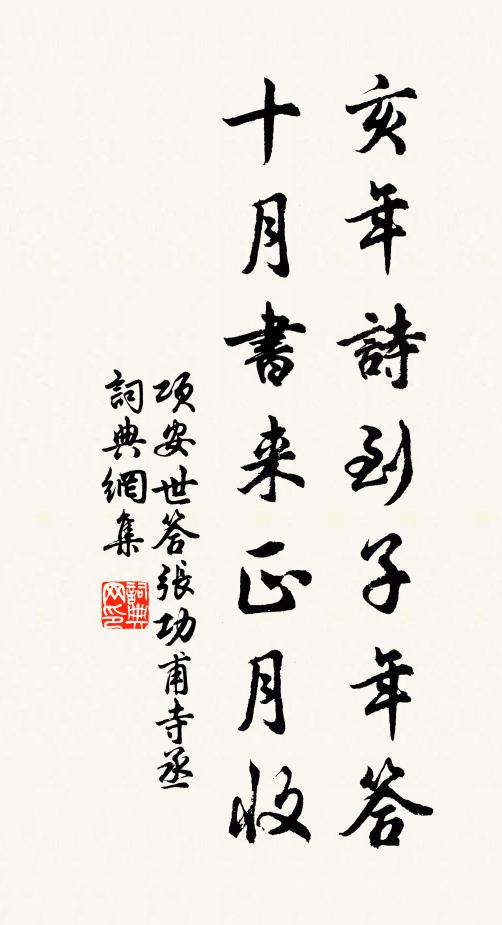 亥年詩到子年答
十月書来正月收
項安世答張功甫寺丞
詞典網集
詞典网印